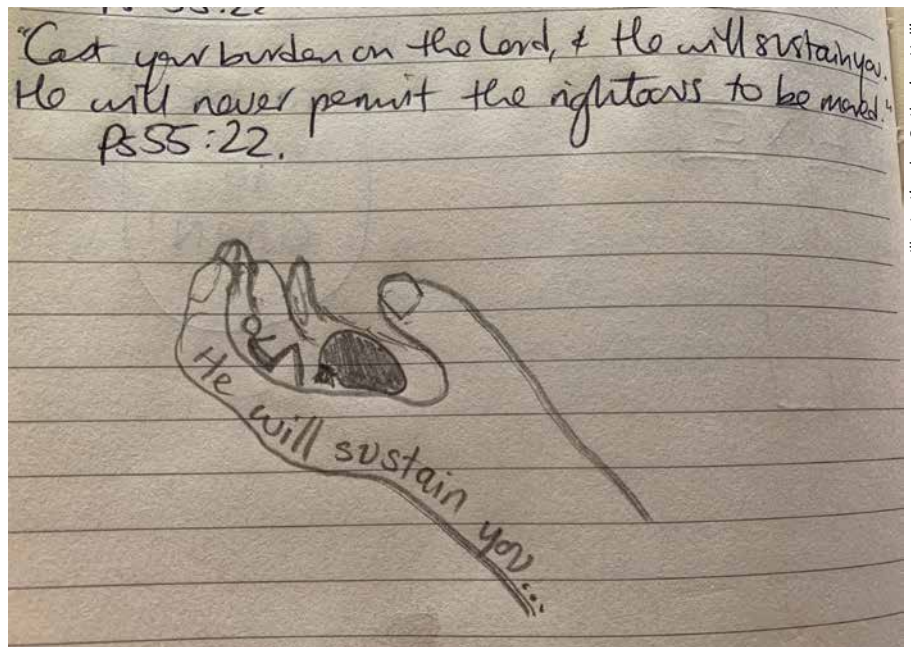 "Cast your burden on the Lord, & He will sustain you.
He will never permit the rightous to be moved."
Ps 55:22.
He will sustain you...